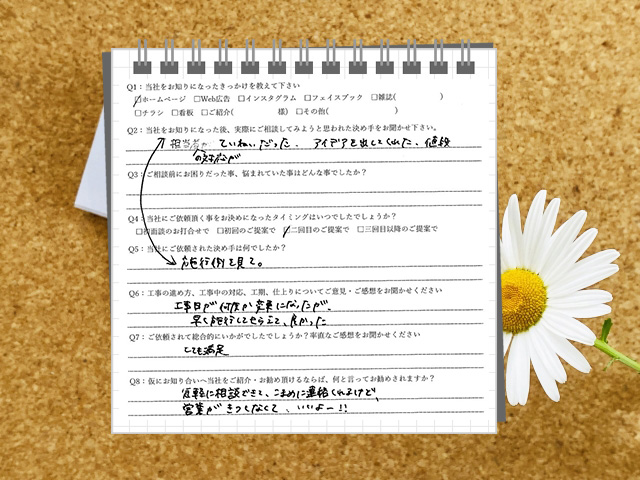 Q1：当社をお知りになったきっかけを教えて下さい
☑ホームページ □Web広告 □インスタグラム □フェイスブック □雑誌( )
□チラシ □看板 □ご紹介( 様) □その他( )
Q2：当社をお知りになった後、実際にご相談してみようと思われた決め手をお聞かせ下さい。
担当者が ていねいだった。 アイデアを出してくれた、値段
の対応が
Q3：ご相談前にお困りだった事、悩まれていた事はどんな事でしたか？
Q4：当社にご依頼頂く事をお決めになったタイミングはいつでしたでしょうか？
□初面談のお打合せで □初回のご提案で ☑二回目のご提案で □三回目以降のご提案で
Q5：当社にご依頼された決め手は何でしたか？
施行例を見て。
Q6：工事の進め方、工事中の対応、工期、仕上りについてご意見・ご感想をお聞かせください
工事日が何度か変更になったが、
早く施行してもらえて、良かった
Q7：ご依頼されて総合的にいかがでしたでしょうか？率直なご感想をお聞かせください
とても満足
Q8：仮にお知り合いへ当社をご紹介・お勧め頂けるならば、何と言ってお勧めされますか？
気軽に相談できて、こまめに連絡くれるけど、
営業がきつくなくて、いいよー!!